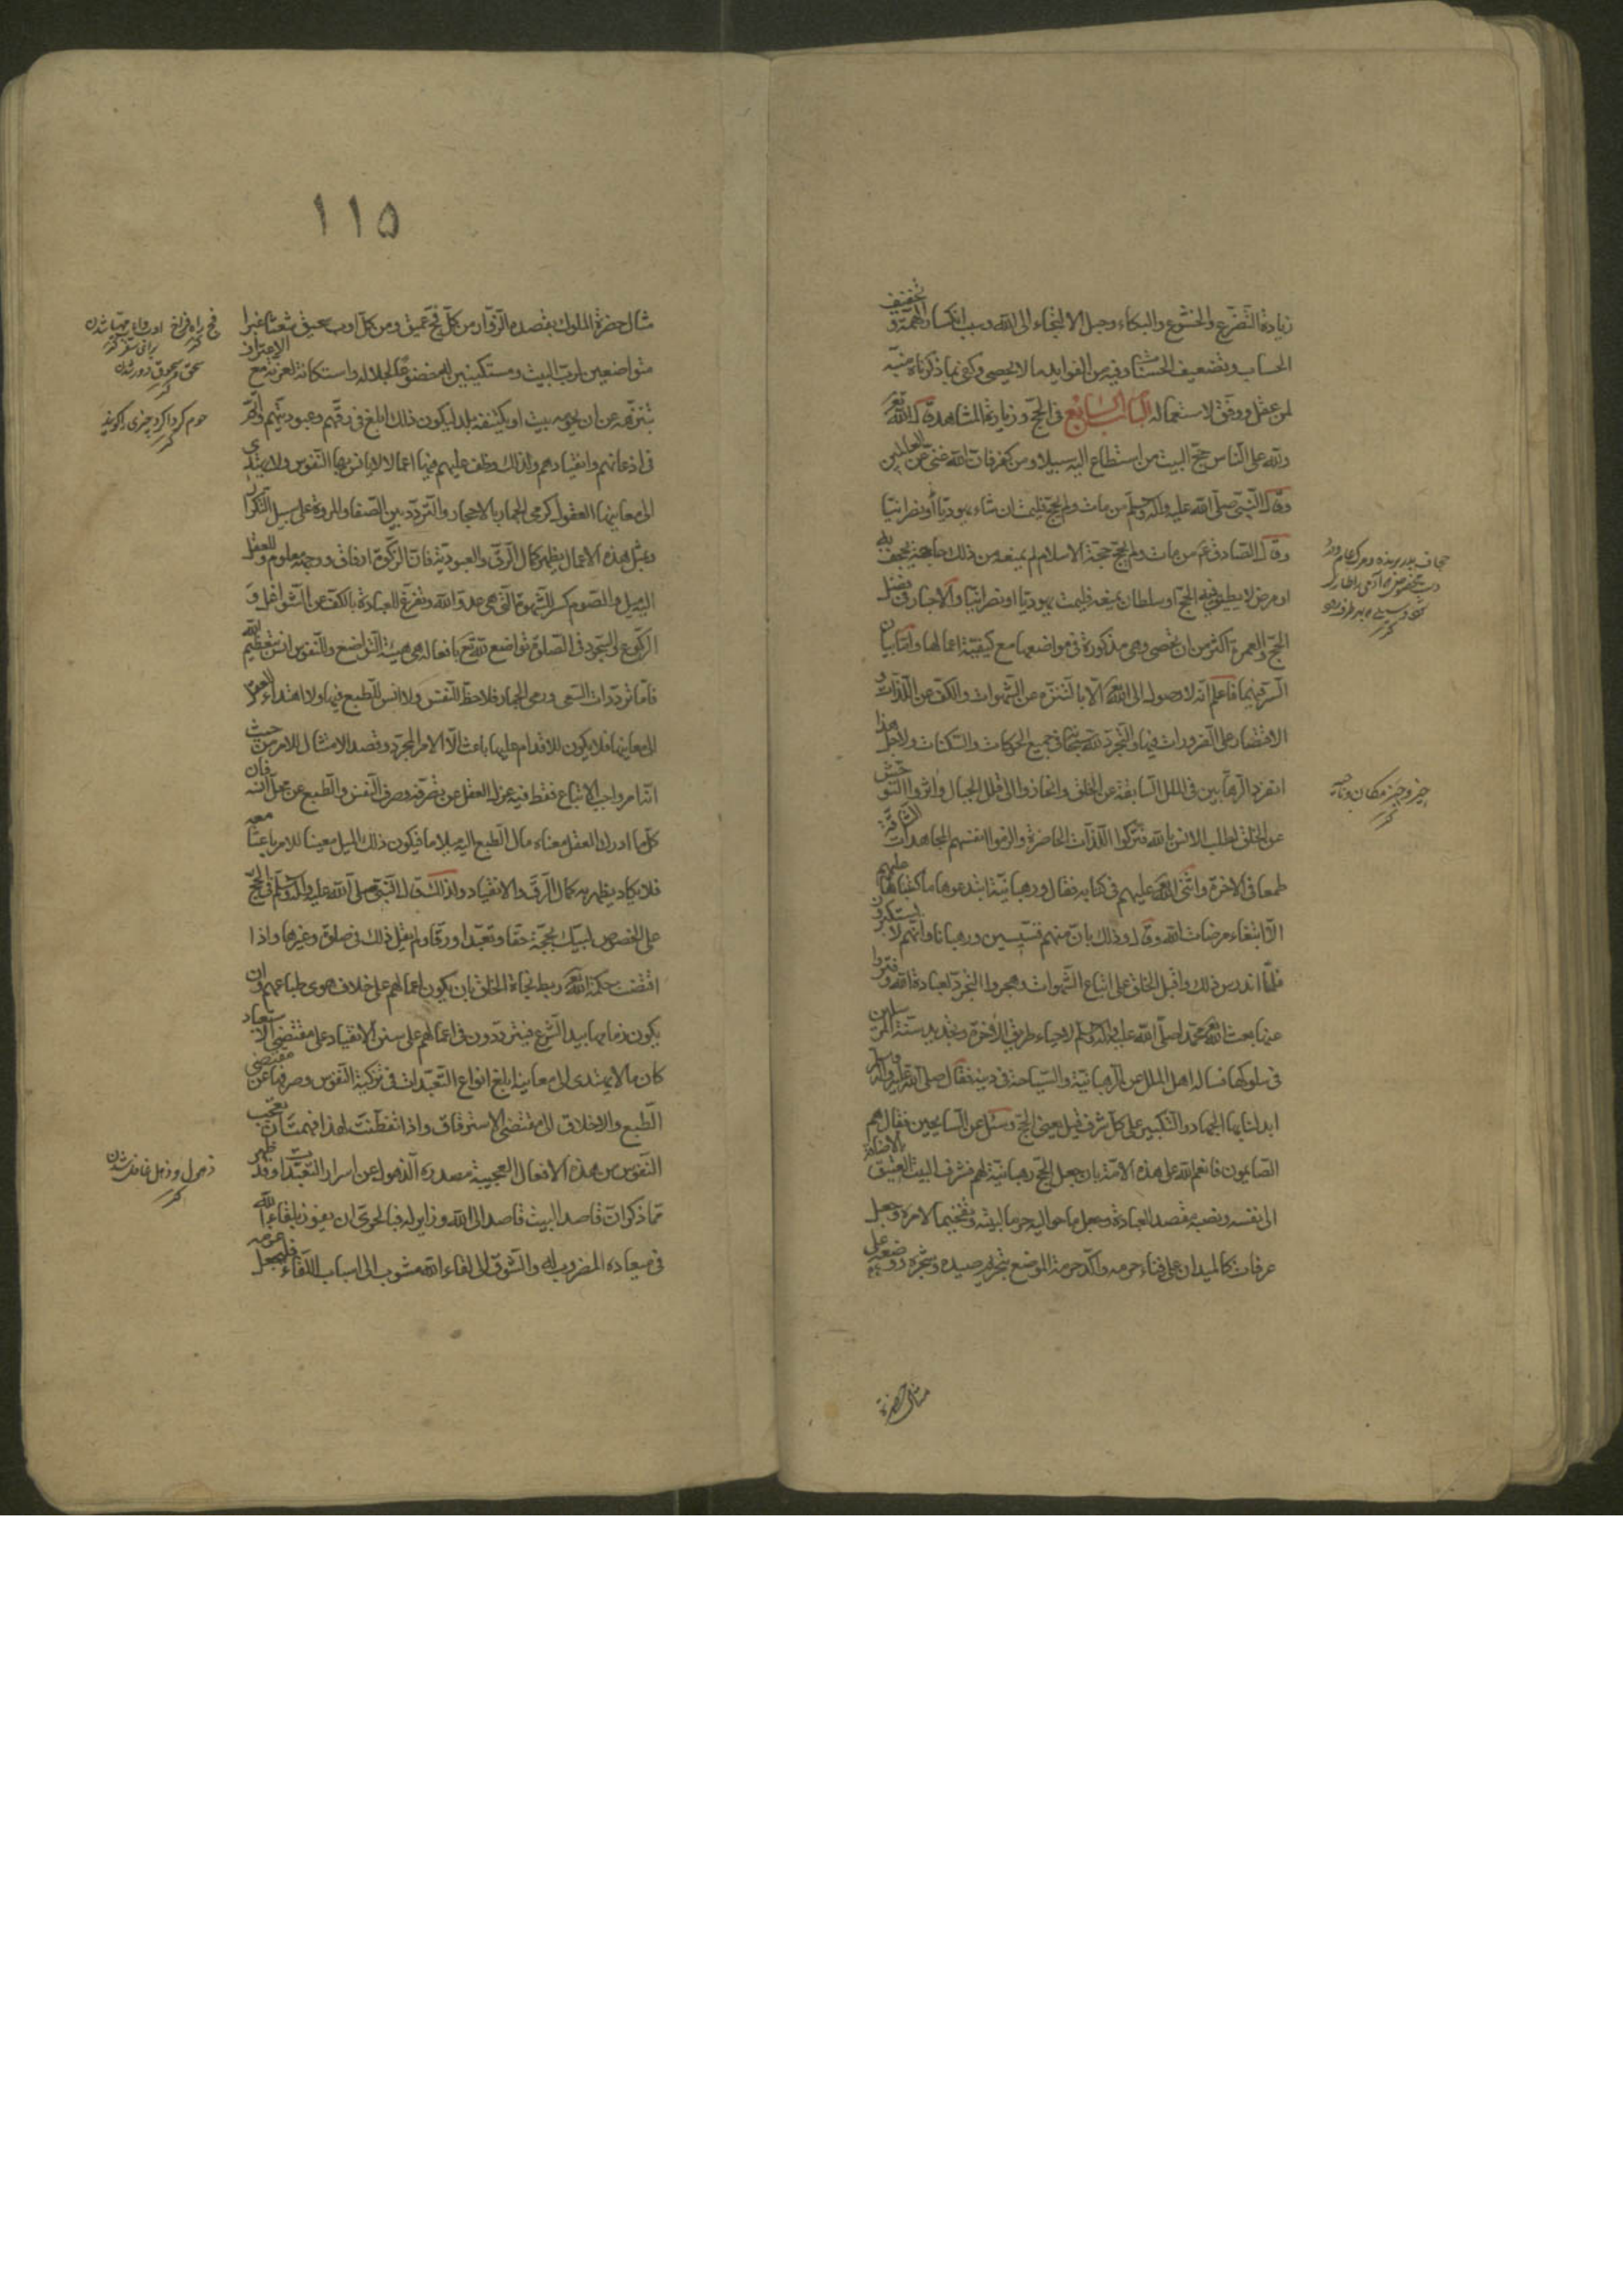 زيادة التضرع والخشوع والبكاء وجبل الالتجاء الى الله وسبب انكسار الهمة و تخفيف
الحساب وتضعيف الحسنات وفيه من الفوايد ما لا يحصى وكفى بما ذكرناه منبه
لمن عقل ووفق لاستعماله الباب السابع فى الحج وزيارة المشاهد قال الله تعر
ولله على الناس حج البيت من استطاع اليه سبيلا ومن كفر فان الله غنى عن العالمين
وقال النبى صلى الله عليه وآله وسلم من مات ولم يحج فليمت ان شاء يهوديا او نصرانيا
وقال الصادق ع من مات ولم يحج حجة الاسلام لم يمنعه من ذلك حاجة تجحف به
او مرض لا يطيق فيه الحج او سلطان يمنعه فليمت يهوديا او نصرانيا والاخبار فى فضل
الحج والعمرة اكثر من ان تحصى وهى مذكورة فى مواضعها مع كيفية اعمالها واما بيان
السر فيها فاعلم انه لا وصول الى الله تعر الا بالتنزه عن الشهوات والكف عن اللذات و
الاقتصار على الضرورات فيها والتجرد لله سبحانه فى جميع الحركات والسكنات ولاجل هذا
انفرد الرهابين فى الملل السابقة عن الخلق وانحازوا الى قلل الجبال واثروا التوحش
عن الخلق لطلب الانس بالله فتركوا اللذات الحاضرة والزموا انفسهم المجاهدات الشاقة
طمعا فى الاخرة واثنى الله تعر عليهم فى كتابه فقال ورهبانية ابتدعوها ما كتبناها عليهم
الا ابتغاء مرضات الله وقال وذلك بان منهم قسيسين ورهبانا وانهم لا يستكبرون
فلما اندرس ذلك واقبل الخلق على اتباع الشهوات وهجروا التجرد لعبادة الله وفتروا
عنها بعث الله تعر محمدا صلى الله عليه وآله وسلم لاحياء طريق الاخرة وتجديد سنة المرسلين
فى سلوكها فساله اهل الملل عن الرهبانية والسياحة فى دينه فقال صلى الله عليه وآله وسلم
ابدلنا بها الجهاد والتكبير على كل شرف قيل يعنى الحج وسئل عن السايحين فقال هم
الصايمون فانعم الله على هذه الامة بان جعل الحج رهبانية لهم فشرف البيت العتيق بالاضافة
الى نفسه ونصبه مقصد العبادة وجعل ما حواليه حرما لبيته وتفخيما لامره وجعل
عرفات كالميدان على فناء حرمه واكد حرمة الموضع بتحريم صيده وشجره ووضعه على
مثال حضرة
جحاف
حيز وحيّز مكان وناحيه
١١٥
مثال حضرة الملوك يقصده الزوار من كل فج عميق ومن كل اوب سحيق شعثا غبرا
متواضعين لرب البيت ومستكينين له خضوعا لجلاله واستكانة لعزته مع الاعتراف
بتنزهه عن ان يحويه بيت او يكنفه بلد ليكون ذلك ابلغ فى رقهم وعبوديتهم واتم
فى اذعانهم وانقيادهم ولذلك وظف عليهم فيها اعمالا لا يانس بها النفوس ولا يهتدى
الى معانيها العقول كرمى الجمار بالاحجار والتردد بين الصفا والمروة على سبيل التكرار
وبمثل هذه الاعمال يظهر كمال الرق والعبودية فان الزكوة ارفاق ووجهه معلوم وللعقل
اليه ميل والصوم كسر الشهوة التى هى عدو الله وتفرغ للعبادة بالكف عن الشواغل و
الركوع والسجود فى الصلوة تواضع لله تع بافعال هى هيئة التواضع وللنفوس انس بتعظيم الله
فاما ترددات السعى ورمى الجمار فلا حظ للنفس ولا انس للطبع فيها ولا اهتداء للعقول
الى معانيها فلا يكون للاقدام عليها باعث الا الامر المجرد وقصد الامتثال للامر من حيث
انه امر واجب الاتباع فقط وفيه عزل العقل عن تصرفه وصرف النفس والطبع عن محل انسه فان
كل ما ادرك العقل معناه مال الطبع اليه ميلا ما فيكون ذلك الميل معينا للامر باعثا معه
فلا يكاد يظهر به كمال الرق والانقياد ولذلك قال النبى صلى الله عليه وآله وسلم فى الحج
على الخصوص لبيك بحجة حقا وتعبدا ورقا ولم يقل ذلك فى صلوة وغيرها واذا
اقتضت حكمة الله تعر ربط نجاة الخلق بان يكون اعمالهم على خلاف هوى طباعهم وان
يكون زمامها بيد الشرع فيترددون فى اعمالهم على سنن الانقياد على مقتضى الاستعباد
كان ما لا يهتدى الى معانيه ابلغ انواع التعبدات فى تزكية النفوس وصرفها عن مقتضى
الطبع والاخلاق الى مقتضى الاسترقاق واذا تفطنت لهذا فهمت ان تعجب
النفوس من هذه الافعال العجيبة مصدره الذهول عن اسرار التعبدات وقد ظهر
مما ذكر ان قاصد البيت قاصد الى الله وزاير له فبالحرى ان يفوز بلقاء الله
فى ميعاده المضروب له والشوق الى لقاء الله مشوب الى اسباب اللقاء فليجعل عزمه
فج راه فراخ
سحق وسحوق دور شدن
حوم كرداكرد چيزى
ذهول وذهل غافل شدن